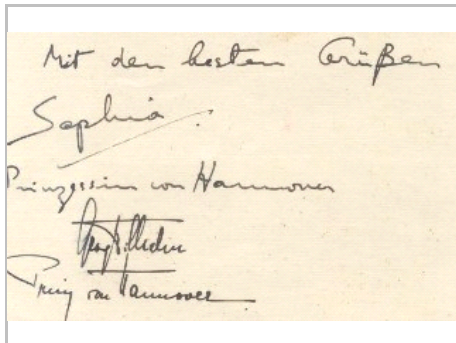 Mit den besten Grüßen
Sophia
Prinzessin von Hannover
Georg Wilhelm
Prinz von Hannover